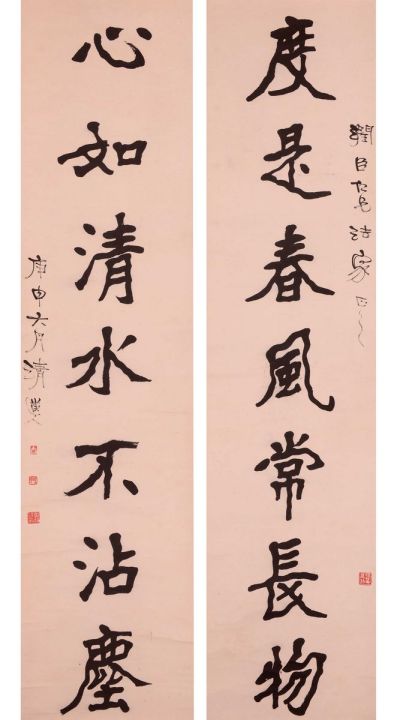 潤臣仁兄法家正之
度是春風常長物
心如清水不沾塵
庚申六月清道人